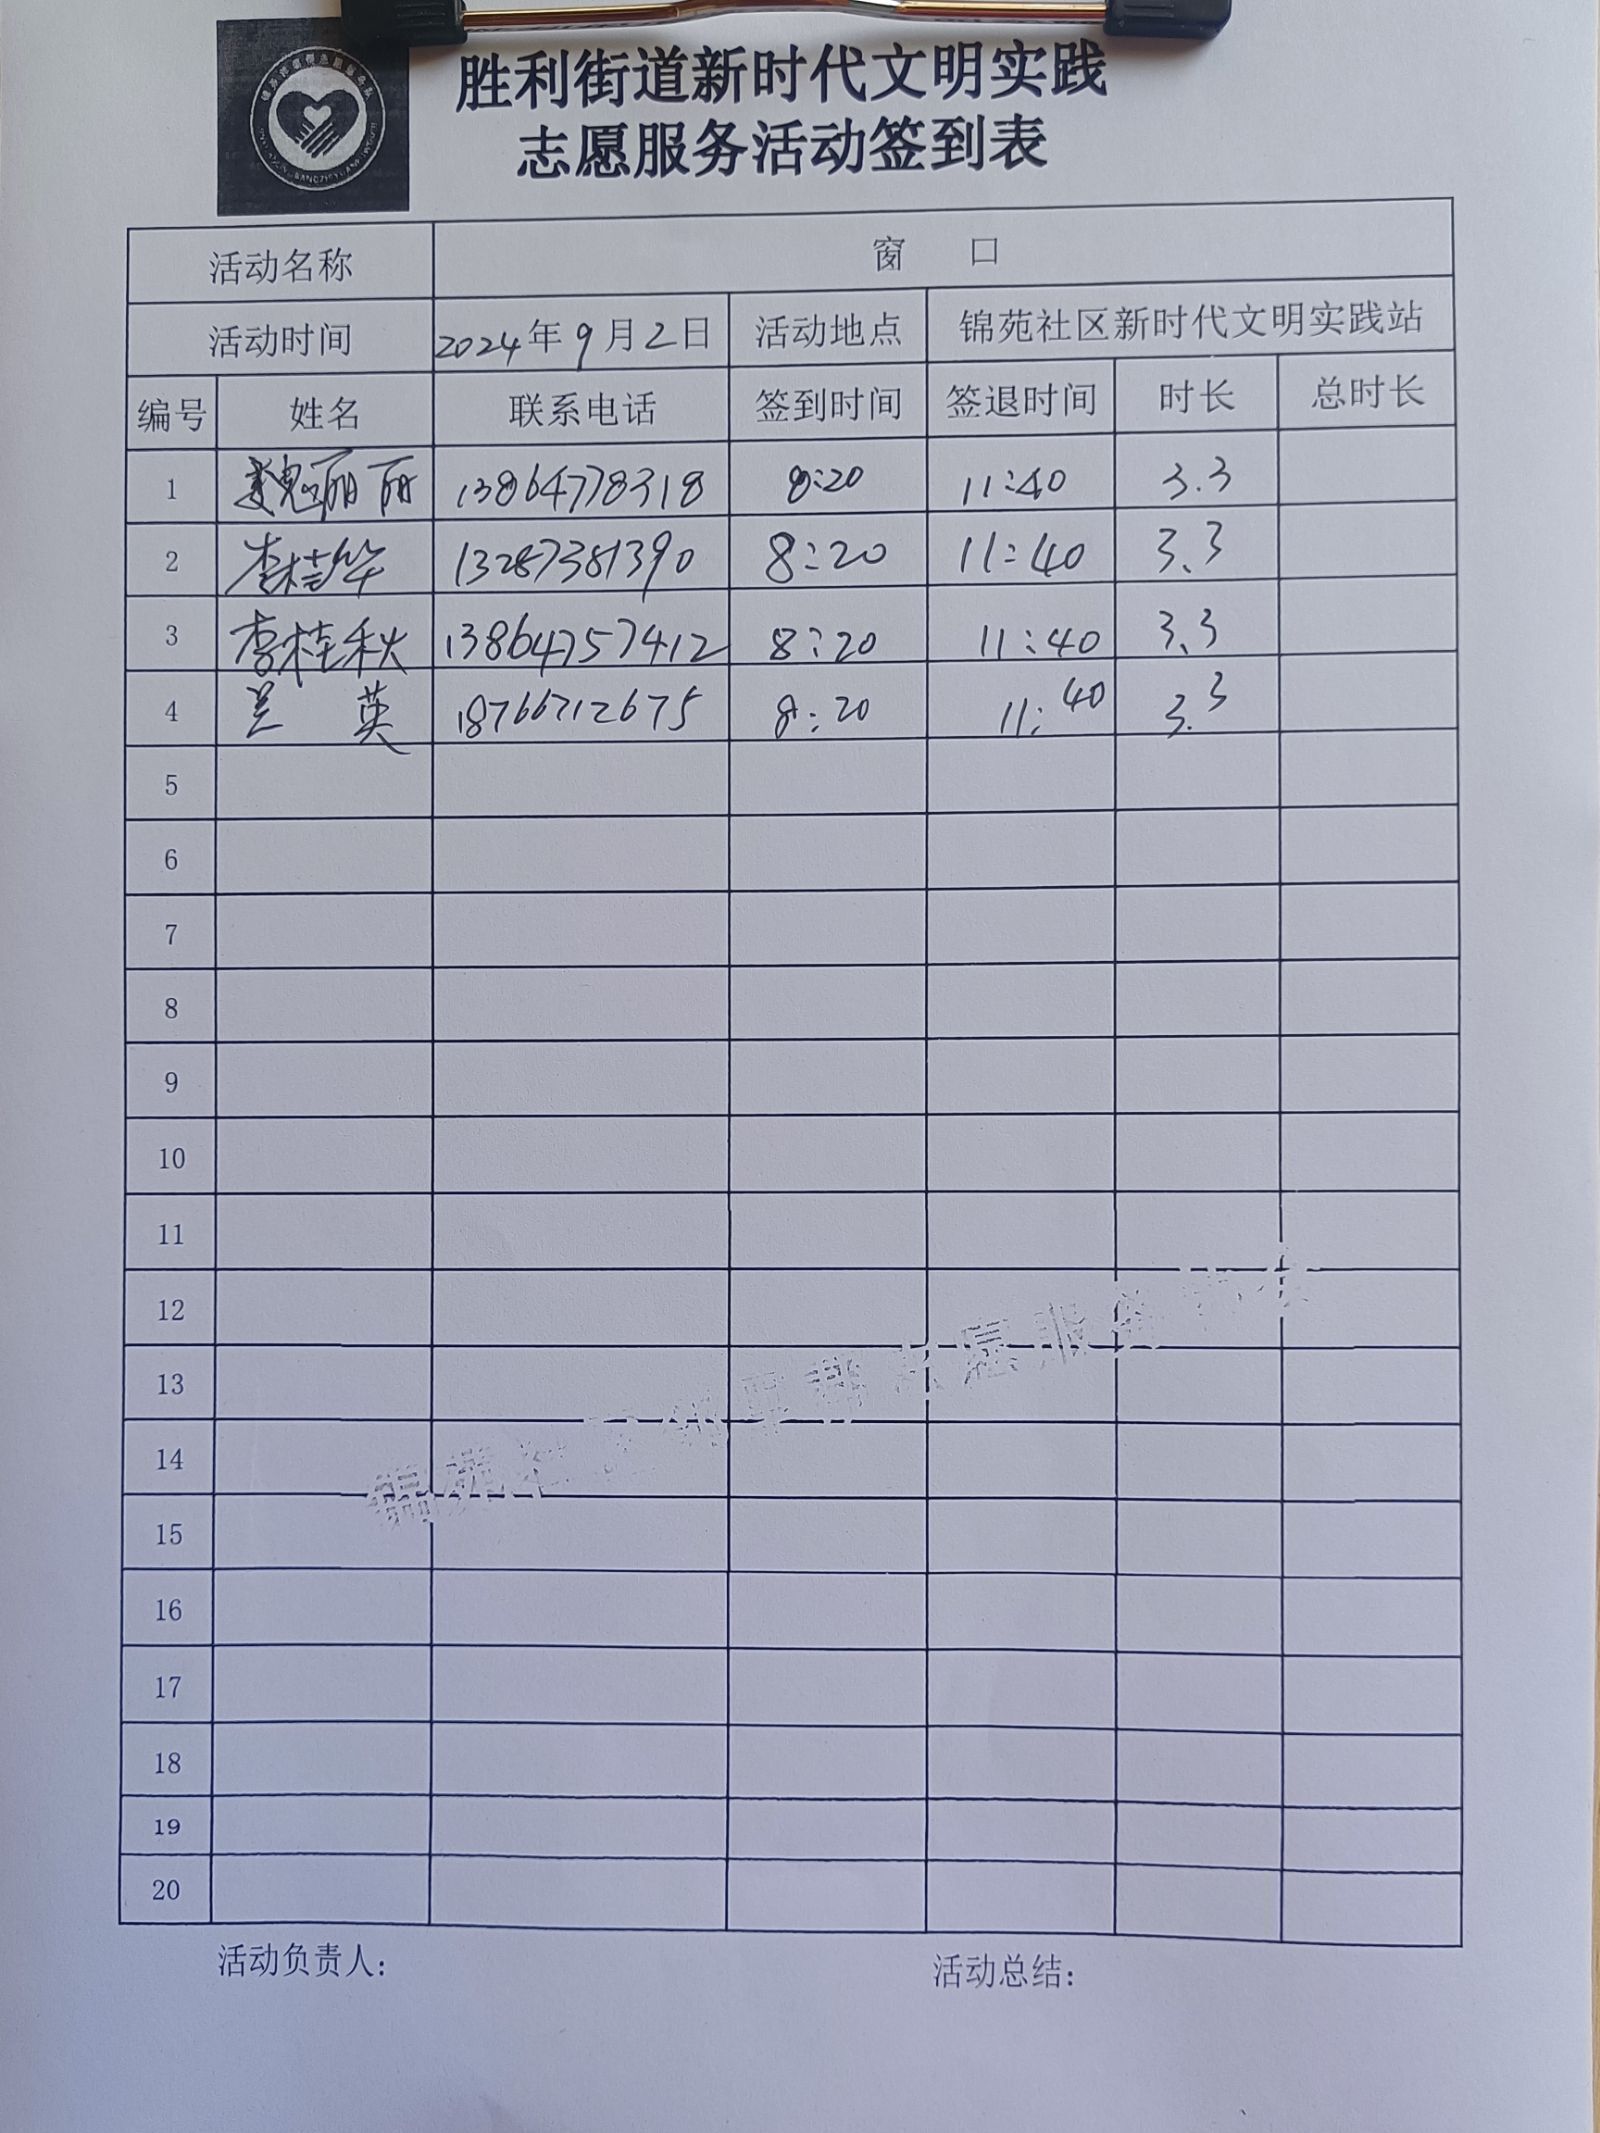 胜利街道新时代文明实践
志愿服务活动签到表
活动名称 窗 口
活动时间 2024年9月2日 活动地点 锦苑社区新时代文明实践站
编号 姓名 联系电话 签到时间 签退时间 时长 总时长
1 魏丽丽 13864778318 8:20 11:40 3.3
2 李桂华 13287381390 8:20 11:40 3.3
3 李桂秋 13864757412 8:20 11:40 3.3
4 兰 英 18766712675 8:20 11:40 3.3
5
6
7
8
9
10
11
12
13
14
15
16
17
18
19
20
活动负责人:
活动总结: